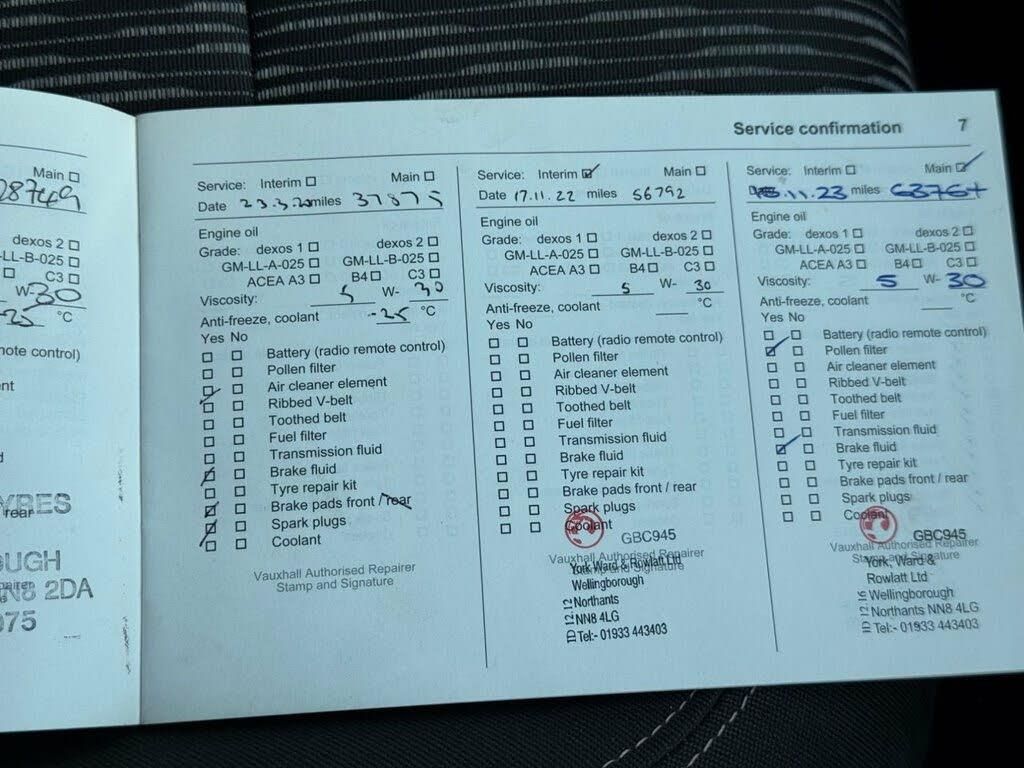 Service confirmation 7
Main
28749
dexos 2
-LL-B-025
C3
W-30
-25 °C
note control)
ent
d
YRES
rear
OUGH
pairer
NN8 2DA
075
Service: Interim Main
Date 23.3.20 miles 37875
Engine oil
Grade: dexos 1 dexos 2
GM-LL-A-025 GM-LL-B-025
ACEA A3 B4 C3
Viscosity: 5 W- 30
Anti-freeze, coolant -25 °C
Yes No
Battery (radio remote control)
Pollen filter
Air cleaner element
Ribbed V-belt
Toothed belt
Fuel filter
Transmission fluid
Brake fluid
Tyre repair kit
Brake pads front / rear
Spark plugs
Coolant
Vauxhall Authorised Repairer
Stamp and Signature
Service: Interim Main
Date 17.11.22 miles 56792
Engine oil
Grade: dexos 1 dexos 2
GM-LL-A-025 GM-LL-B-025
ACEA A3 B4 C3
Viscosity: 5 W- 30
Anti-freeze, coolant °C
Yes No
Battery (radio remote control)
Pollen filter
Air cleaner element
Ribbed V-belt
Toothed belt
Fuel filter
Transmission fluid
Brake fluid
Tyre repair kit
Brake pads front / rear
Spark plugs
Coolant
GBC945
Vauxhall Authorised Repairer
Stamp and Signature
York, Ward & Rowlatt Ltd
Wellingborough
Northants
NN8 4LG
Tel:- 01933 443403
ID 12-12
Service: Interim Main
11.23 miles 63764
Engine oil
Grade: dexos 1 dexos 2
GM-LL-A-025 GM-LL-B-025
ACEA A3 B4 C3
Viscosity: 5 W- 30
Anti-freeze, coolant °C
Yes No
Battery (radio remote control)
Pollen filter
Air cleaner element
Ribbed V-belt
Toothed belt
Fuel filter
Transmission fluid
Brake fluid
Tyre repair kit
Brake pads front / rear
Spark plugs
Coolant
GBC945
Vauxhall Authorised Repairer
Stamp and Signature
York, Ward &
Rowlatt Ltd
Wellingborough
Northants NN8 4LG
Tel:- 01933 443403
ID 12-16